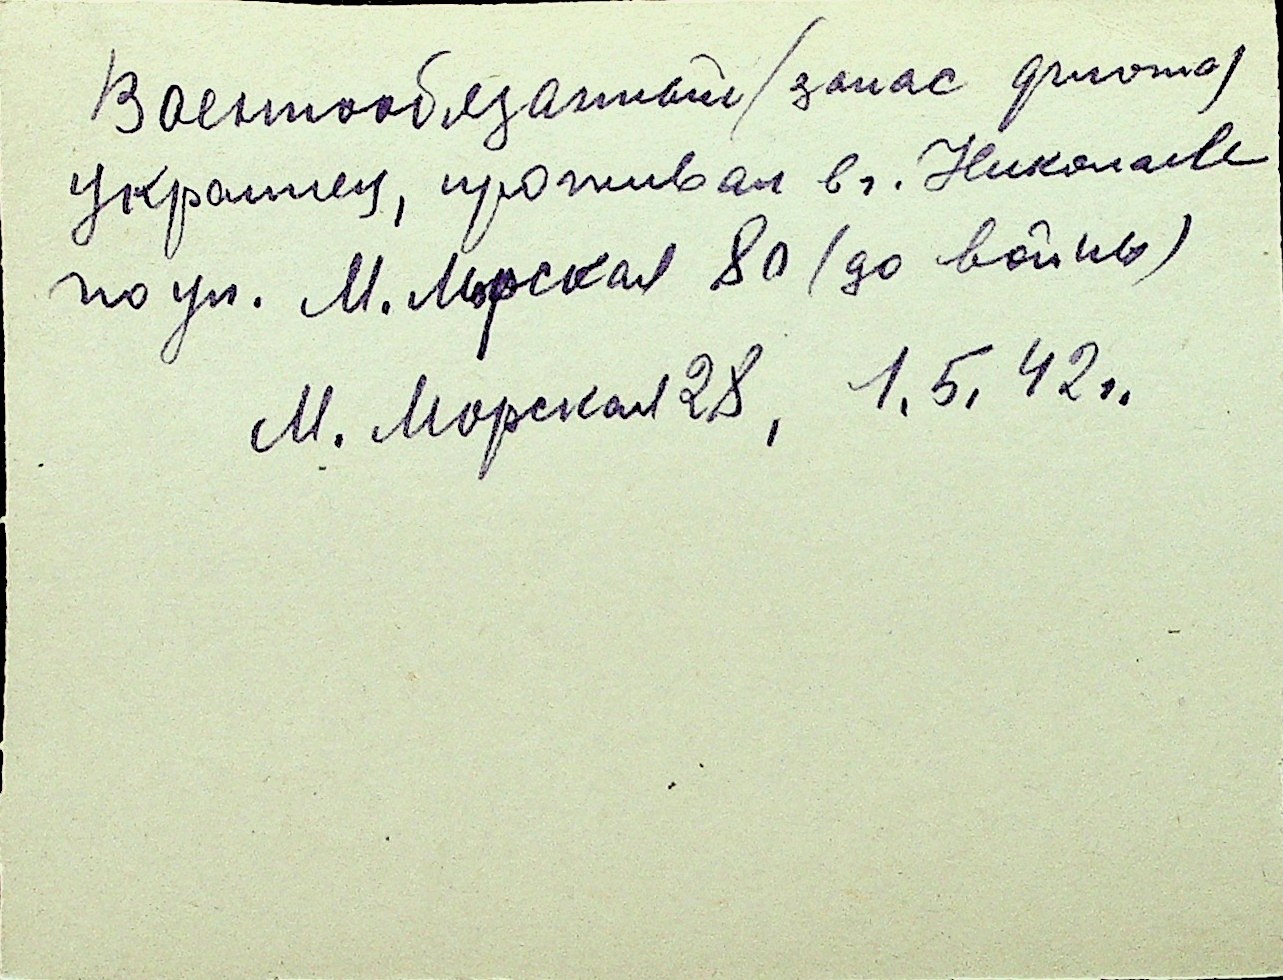 Военнообязанный (запас флота)
украинец, проживал в г. Николаеве
по ул. М. Морская 80 (до войны)
М. Морская 28, 1.5.42г.